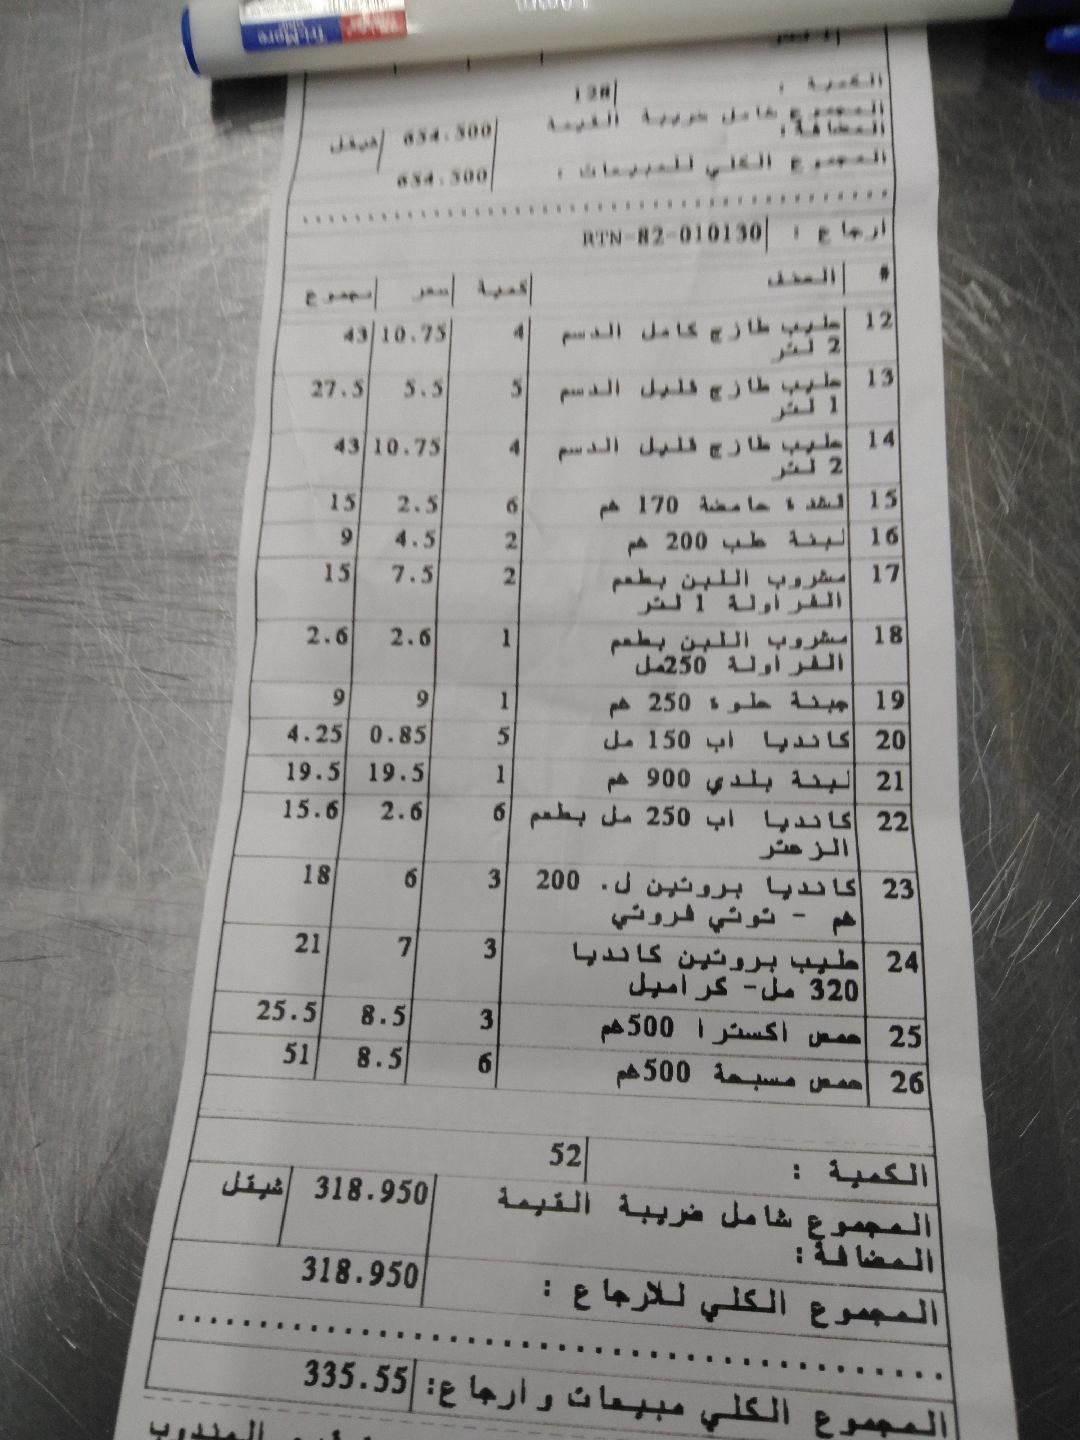 Tri-More
الكمية : 128
المجموع شامل ضريبة القيمة 654.500 شيقل
المضافة:
المجموع الكلي للمبيعات : 654.500
ارجاع : RTN-82-010130
# الصنف كمية سعر مجموع
12 حليب طازج كامل الدسم 4 10.75 43
2 لتر
13 حليب طازج قليل الدسم 5 5.5 27.5
1 لتر
14 حليب طازج قليل الدسم 4 10.75 43
2 لتر
15 قشدة حامضة 170 غم 6 2.5 15
16 لبنة طب 200 غم 2 4.5 9
17 مشروب اللبن بطعم 2 7.5 15
الفراولة 1 لتر
18 مشروب اللبن بطعم 1 2.6 2.6
الفراولة 250مل
19 جبنة حلوة 250 غم 1 9 9
20 كانديا اب 150 مل 5 0.85 4.25
21 لبنة بلدي 900 غم 1 19.5 19.5
22 كانديا اب 250 مل بطعم 6 2.6 15.6
الزعتر
23 كانديا بروتين ل. 200 3 6 18
غم - توتي فروتي
24 حليب بروتين كانديا 3 7 21
320 مل- كراميل
25 حمص اكسترا 500غم 3 8.5 25.5
26 حمص مسبحة 500غم 6 8.5 51
الكمية : 52
المجموع شامل ضريبة القيمة 318.950 شيقل
المضافة:
المجموع الكلي للارجاع : 318.950
المجموع الكلي مبيعات وارجاع: 335.55
المندوب